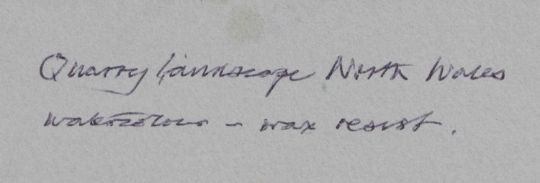 Quarry Landscape North Wales
watercolour - wax resist.